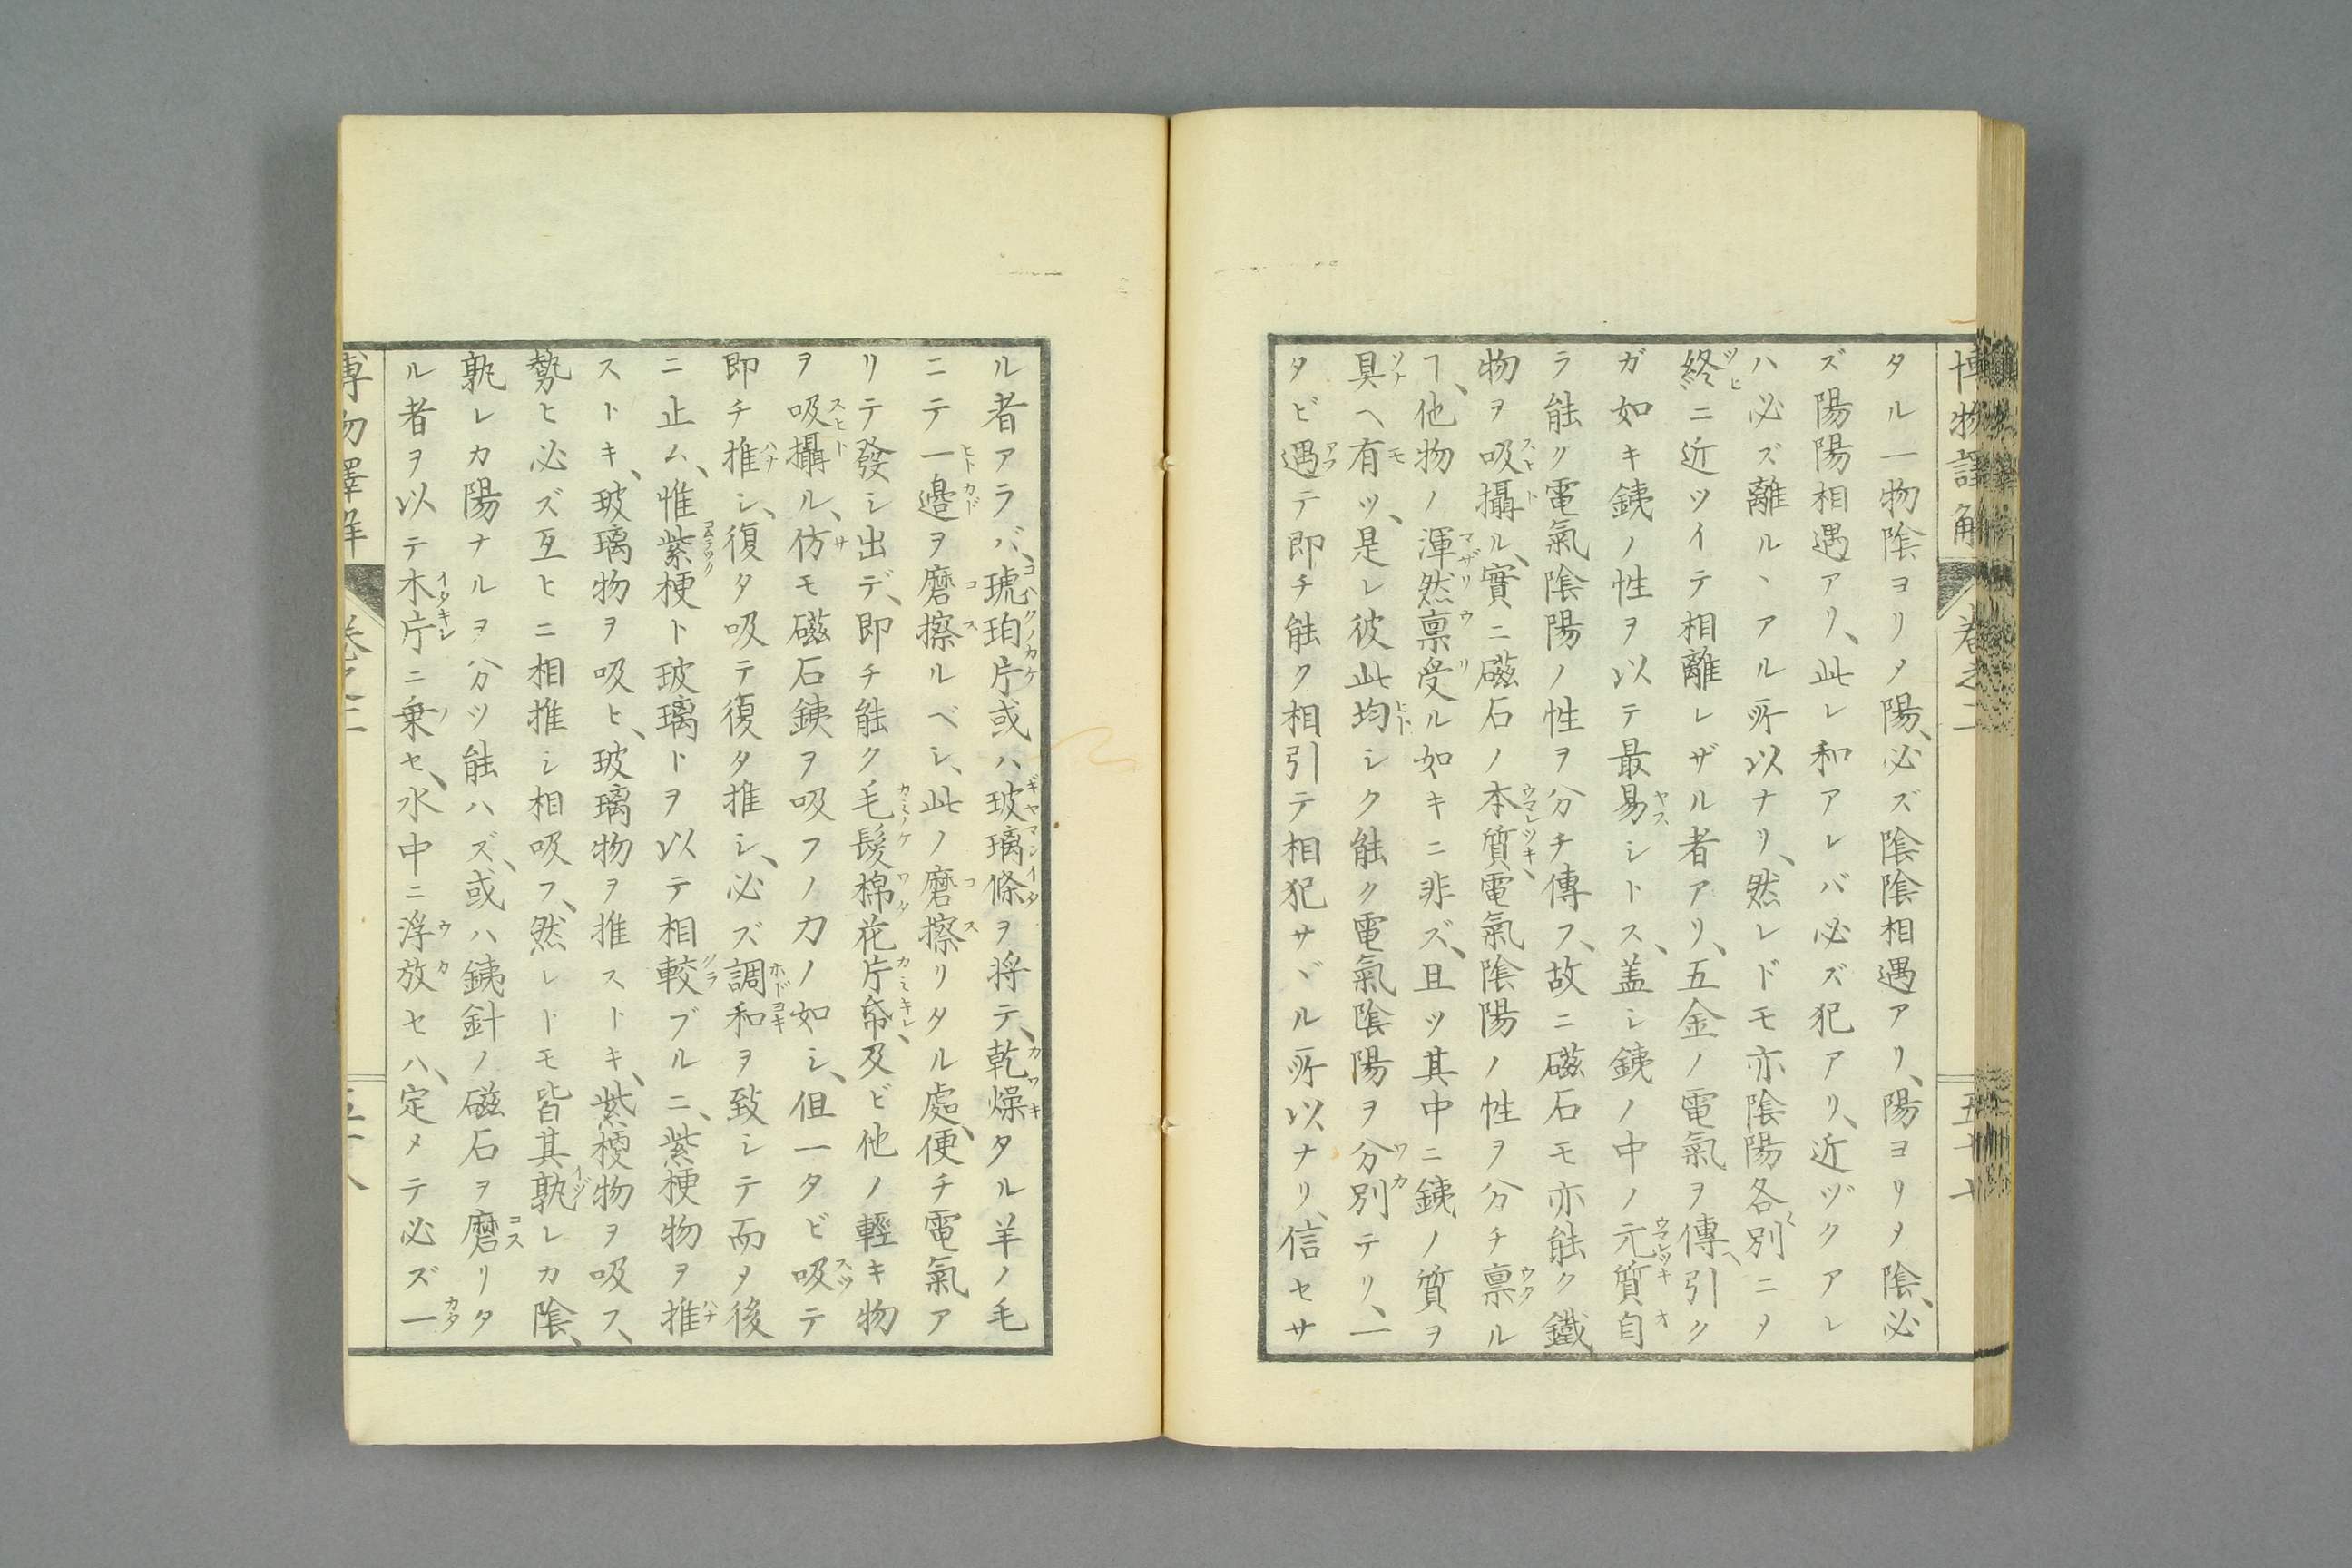 タル一物陰ヨリ〆陽、必ズ陰陰相遇アリ、陽ヨリ〆陰、必
ズ陽陽相遇アリ、此レ和アレバ必ズ犯アリ、近ヅクアレ
ハ必ズ離ルヽアル所以ナリ、然レドモ亦陰陽各別ニ〆
終ニ近ツイテ相離レザル者アリ、五金ノ電氣ヲ傳ヘ引ク
ガ如キ銕ノ性ヲ以テ最易シトス、盖シ銕ノ中ノ元質自
ラ能ク電氣陰陽ノ性ヲ分チ傳フ、故ニ磁石モ亦能ク鐵
物ヲ吸攝ル、實ニ磁石ノ本質、電氣陰陽ノ性ヲ分チ禀ル
ヿ、他物ノ渾然禀受ル如キニ非ズ、且ツ其中ニ銕ノ質ヲ
具ヘ有ツ、是レ彼此均シク能ク電氣陰陽ヲ分別テリ、一
タビ遇テ即チ能ク相引テ相犯サヾル所以ナリ、信セサ
ル者アラバ、琥珀片或ハ玻璃條ヲ将テ、乾燥タル羊ノ毛
ニテ一邉ヲ磨擦ルベシ、此ノ磨擦リタル處、便チ電氣ア
リテ發シ出デ、即チ能ク毛髮棉花片帋、及ビ他ノ輕キ物
ヲ吸攝ル、仿モ磁石銕ヲ吸フノ力ノ如シ、但一タビ吸テ
即チ推シ、復タ吸テ復タ推シ、必ズ調和ヲ致シテ而〆後
ニ止ム、惟紫梗ト玻璃トヲ以テ相較ブルニ、紫梗物ヲ推
ストキ、玻璃物ヲ吸ヒ、玻璃物ヲ推ストキ、紫梗物ヲ吸フ、
勢ヒ必ズ互ヒニ相推シ相吸フ、然レドモ皆其孰レカ陰、
孰レカ陽ナルヲ分ツ能ハズ、或ハ銕針ノ磁石ヲ磨リタ
ル者ヲ以テ木片ニ乗セ、水中ニ浮放セハ、定メテ必ズ一